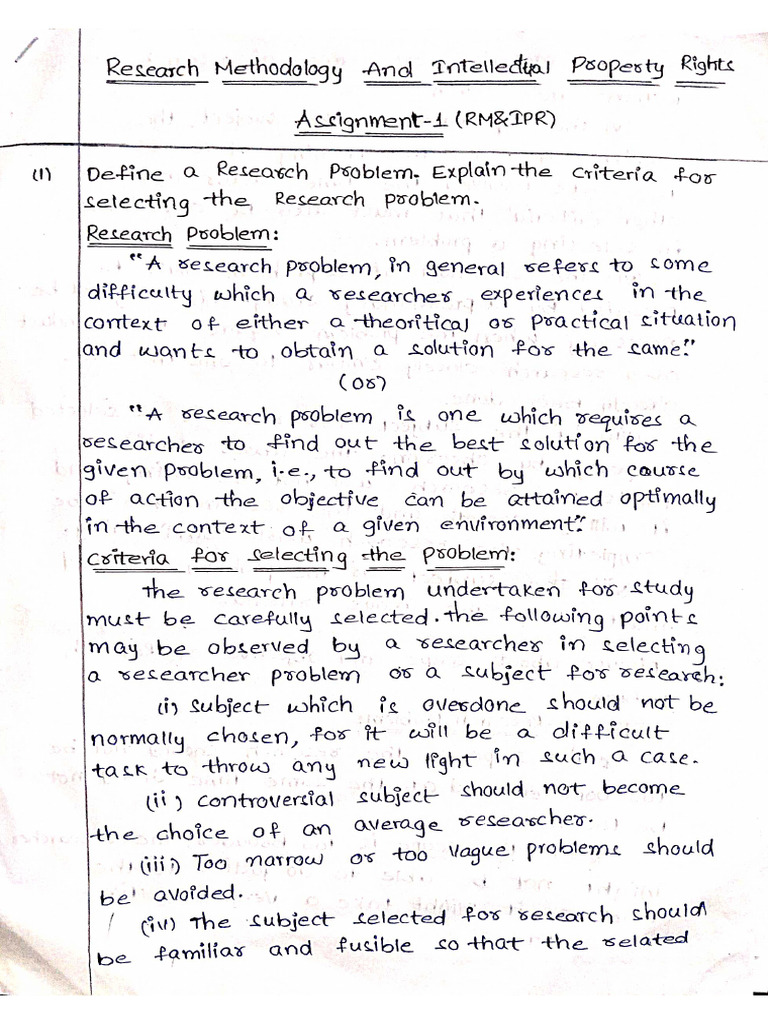 Research Methodology And Intellectual Property Rights
Assignment-1 (RM&IPR)
(1) Define a Research Problem. Explain the criteria for
selecting the Research problem.
Research Problem:
"A research problem, in general refers to some
difficulty which a researcher experiences in the
context of either a theoritical or practical situation
and wants to obtain a solution for the same."
(or)
"A research problem is one which requires a
researcher to find out the best solution for the
given problem, i.e., to find out by which course
of action the objective can be attained optimally
in the context of a given environment."
Criteria for selecting the problem:
the research problem undertaken for study
must be carefully selected. the following points
may be observed by a researcher in selecting
a researcher problem or a subject for research:
(i) subject which is overdone should not be
normally chosen, for it will be a difficult
task to throw any new light in such a case.
(ii) controversial subject should not become
the choice of an average researcher.
(iii) Too narrow or too vague problems should
be avoided.
(iv) The subject selected for research should
be familiar and fusible so that the related